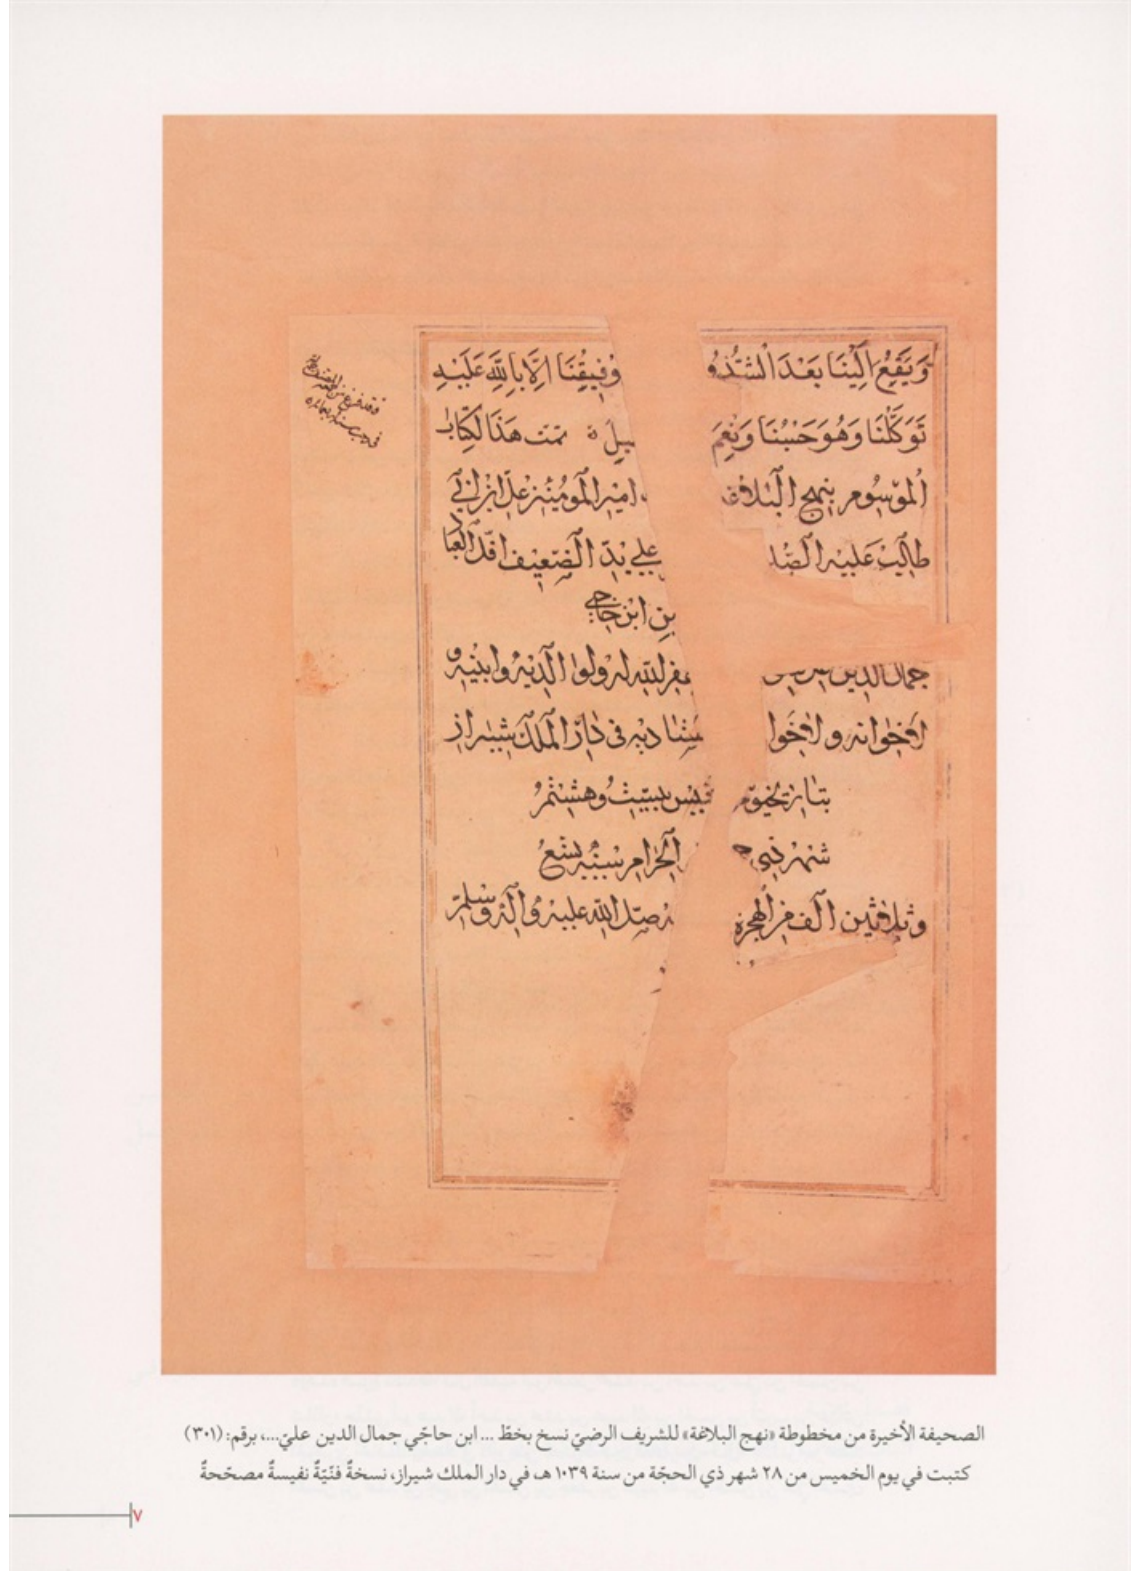 وَيَقَعُ اِلَيْنَا بَعْدَ الشُّذُو وْفِيقُنَا اِلَّا بِاللهِ عَلَيْهِ
تَوَكَّلْنَا وَهُوَ حَسْبُنَا وَنِعْمَ تمت هَذَا الكِتَاب
الموسوم بنهج البلاغة امير المومنين علي ابن ابي
طالب عليه على يد الضعيف اقل العباد
بن ابن حاجي
جمال الدين غفر الله له ولوالديه وابنيه و
لاخوانه ولاخوا في دار الملك شيراز
بتاريخ يوم بيست وهشتم
شهر الحرام سنه تسع
وثلاثين الف من الهجرة صلى الله عليه واله وسلم
الصحيفة الأخيرة من مخطوطة «نهج البلاغة» للشريف الرضيّ نسخ بخطّ ... ابن حاجّي جمال الدين عليّ...، برقم: (٣٠١)
كتبت في يوم الخميس من ٢٨ شهر ذي الحجّة من سنة ١٠٣٩ هـ، في دار الملك شيراز، نسخةٌ فنّيّةٌ نفيسةٌ مصحّحةٌ
٧